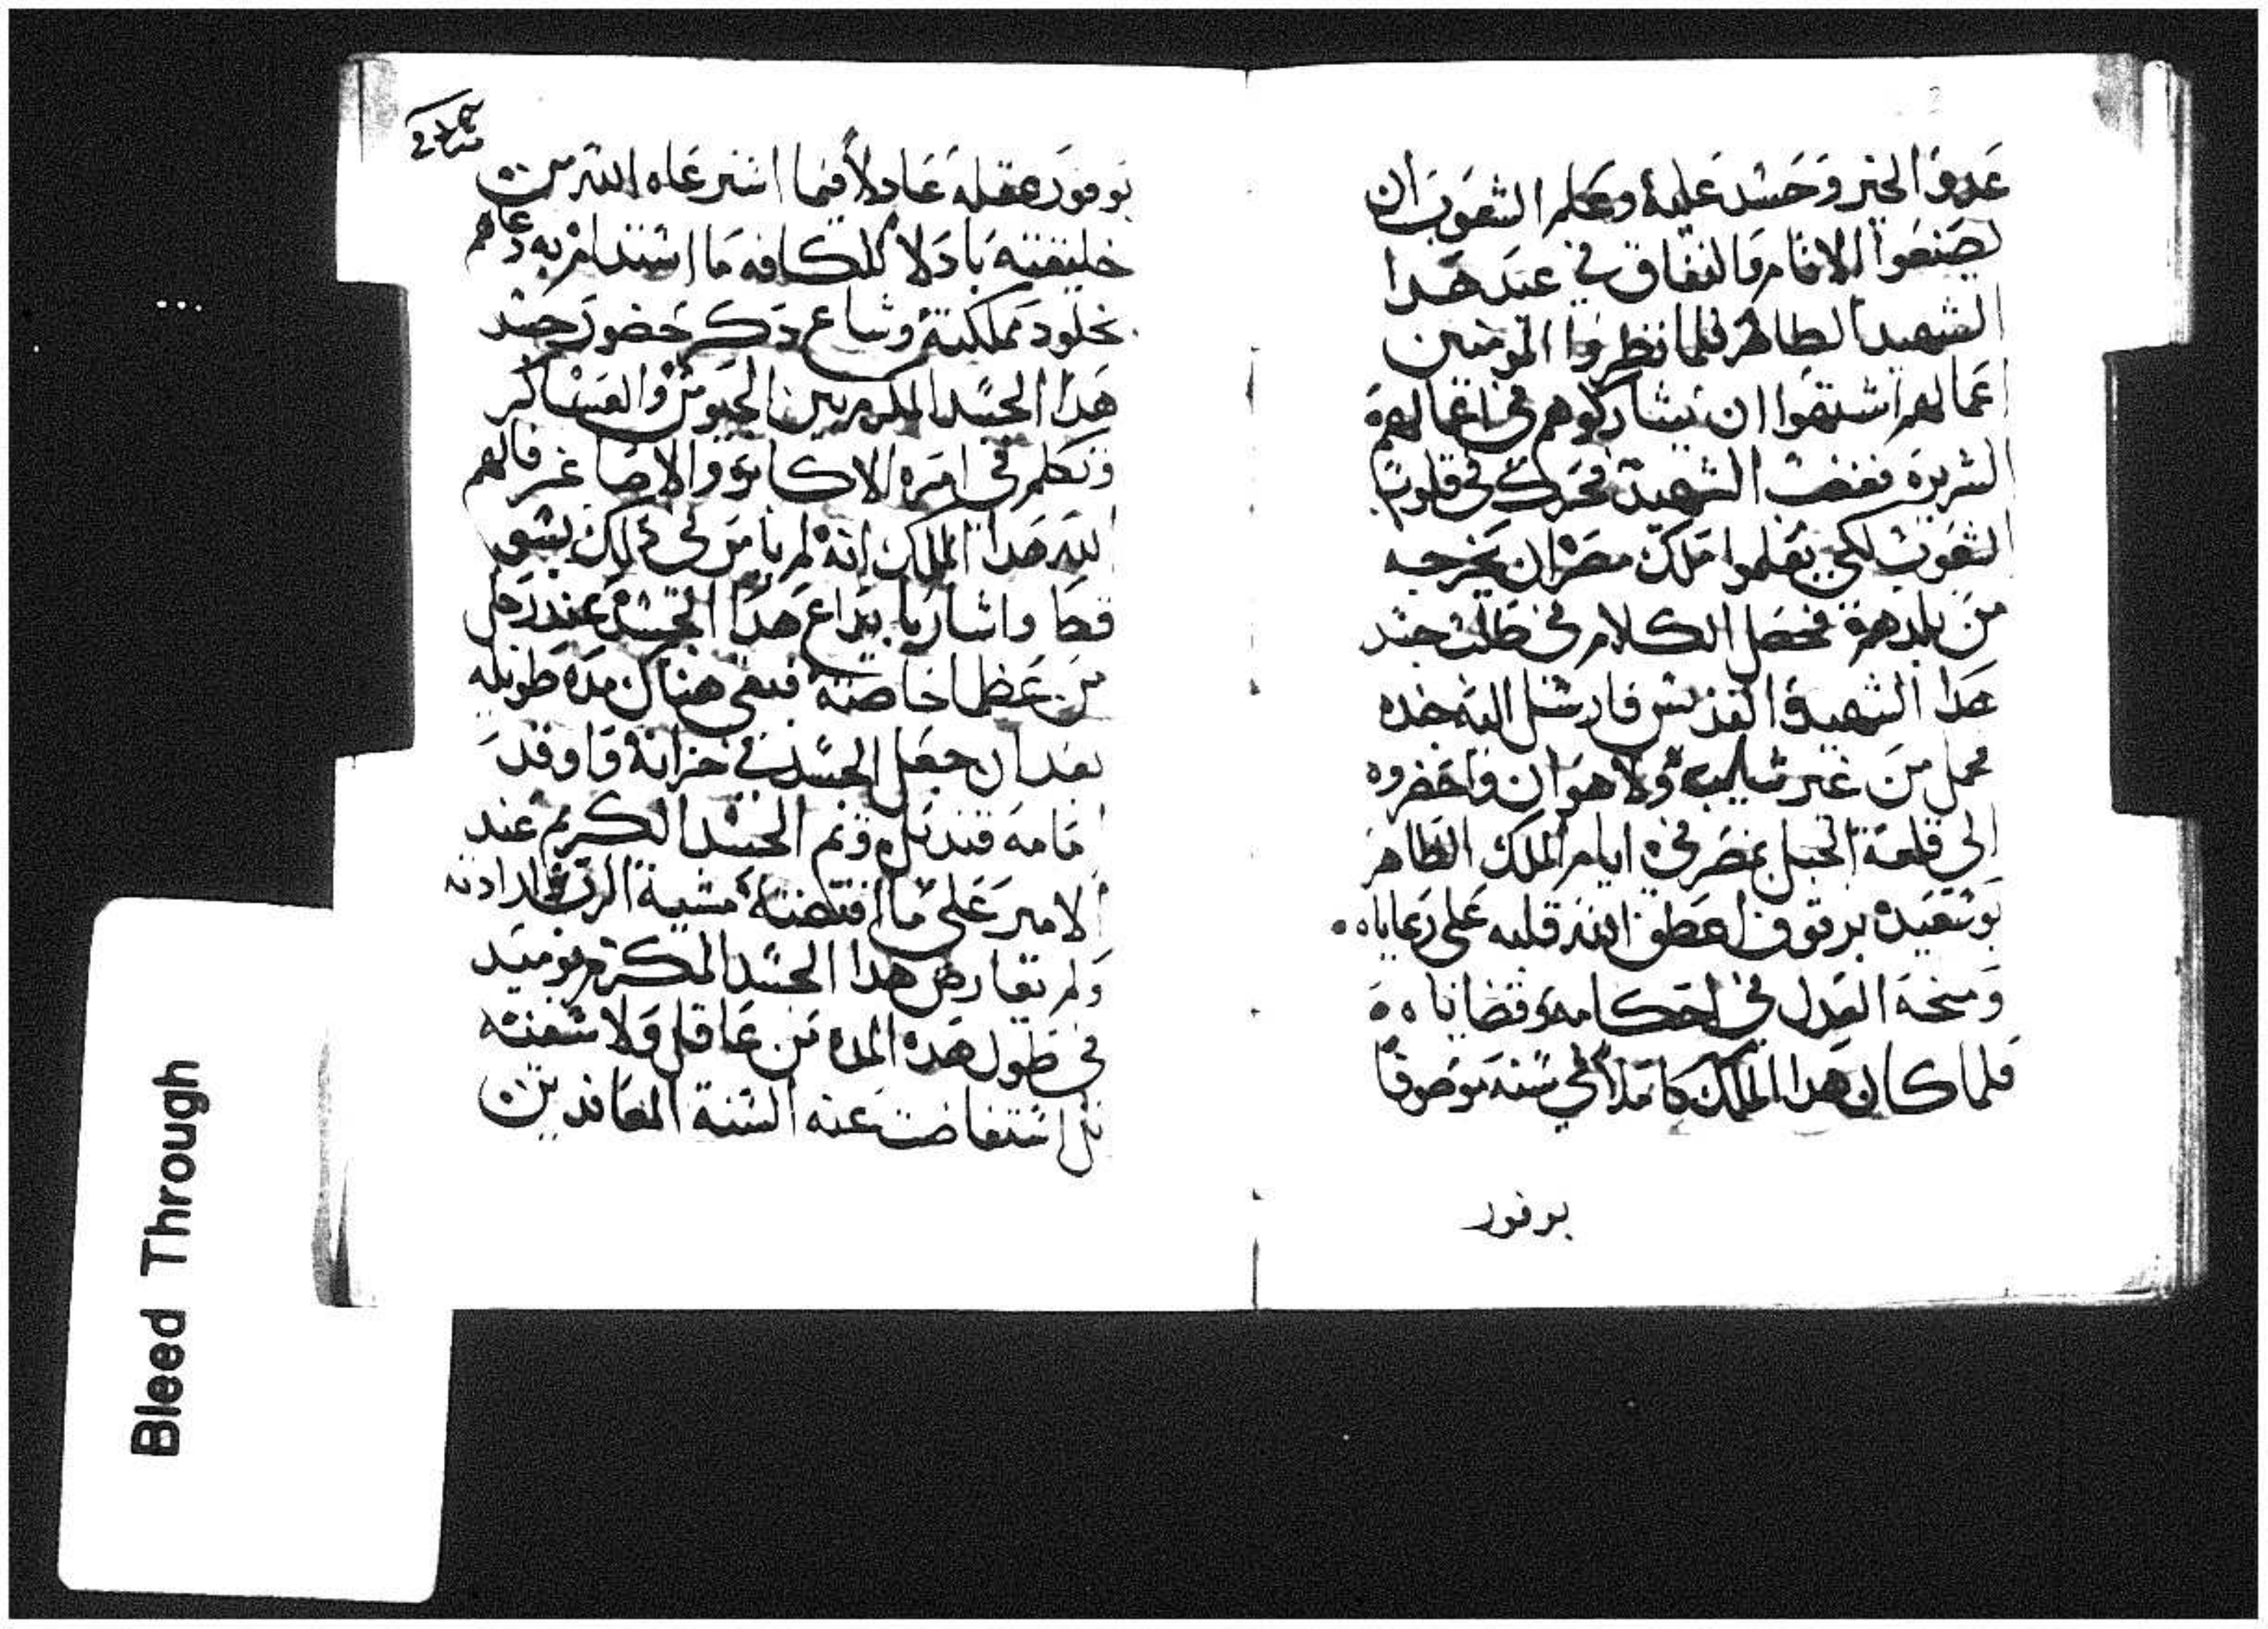 عدوا الخير وحسد عليه وعلم الشعوب ان
يصنعوا الاثام والنفاق في عيد هدا
الشهيد الطاهر فلما نظروا المومنين
اعمالهم اشتهوا ان يشاركوهم في اعمالهم
الشريره فغضب الشهيد فحرك في قلوب
الشعوب لكي يعلموا ملك مصر ان يخرجه
من بلدهم فحصل الكلام في طلب جسد
هدا الشهيد القديس فارسل اليه
محمل من غير ولا هوان واحضروه
الى قلعة الجبل بمصر في ايام الملك الظاهر
بوسعيد برقوق اعطف الله قلبه على رعاياه
ومنحه العدل في احكامه وقضاياه
فلما كان هدا الملك كاملا في سنه موصوفا
بوفور
بوفور عقله عادلا فيما استرعاه الله من
خليقته بادلا للكافه ما استدام به دعاهم
بخلود مملكته وشاع دكر حضور جسد
هدا الجسد المكرم بين الجيوش والعساكر
وتكلم في امره الاكابر والاصاغر فالهم
الله هدا الملك انه لم يامر في دلك بشي
قط واشار بايداع هدا الجسد عند رجل
من عظما خاصته فبقي هناك مده طويله
بعد ان جعل الجسد في خزانة واوقد
امامه قنديل وتم الجسد الكريم عند
الامير على ما اقتضته مشية الرب وارادته
ولم يعارض هدا الجسد المكرم يوميد
في طول هده المده من عاقل ولا
بل استفاضت عنه السنة
Bleed Through